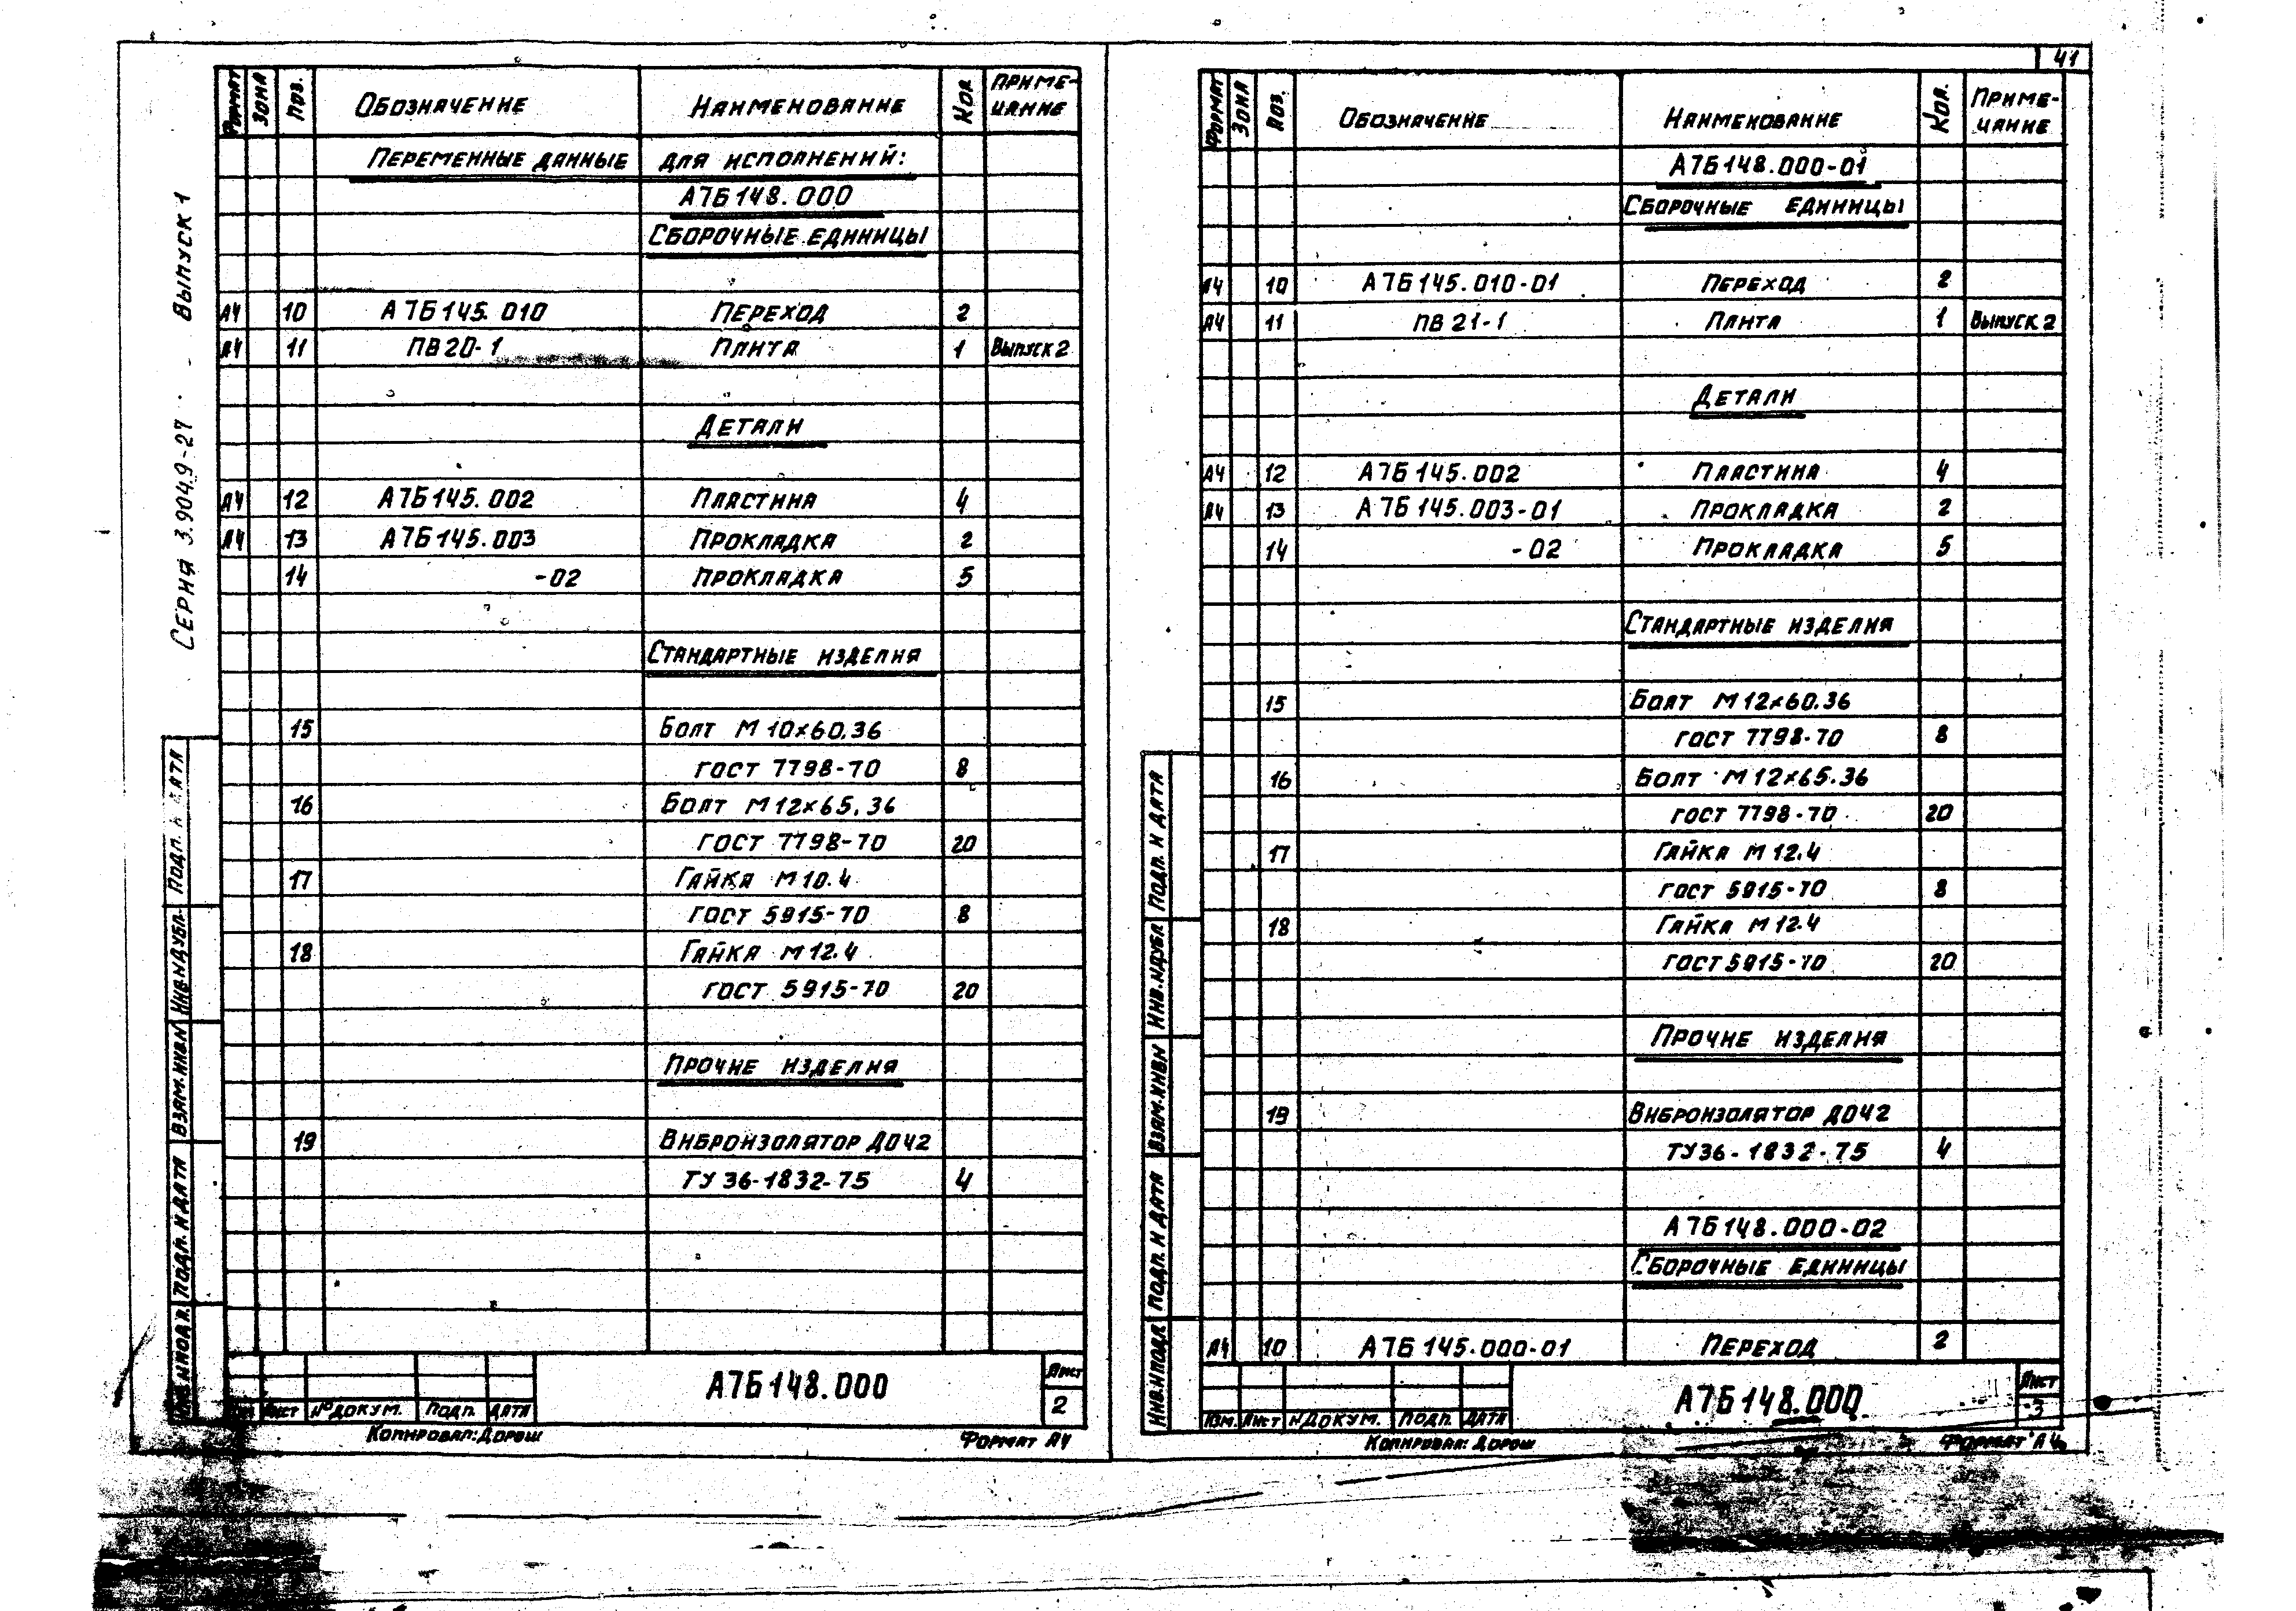 41
СЕРИЯ 3.904.9-27 - ВЫПУСК 1
ФОРМАТ ЗОНА ПОЗ. ОБОЗНАЧЕНИЕ НАИМЕНОВАНИЕ КОЛ ПРИМЕ-
ЧАНИЕ
ПЕРЕМЕННЫЕ ДАННЫЕ ДЛЯ ИСПОЛНЕНИЙ:
А7Б148.000
СБОРОЧНЫЕ ЕДИНИЦЫ
А4 10 А7Б145.010 ПЕРЕХОД 2
А4 11 ПВ20-1 ПЛИТА 1 ВЫПУСК 2
ДЕТАЛИ
А4 12 А7Б145.002 ПЛАСТИНА 4
А4 13 А7Б145.003 ПРОКЛАДКА 2
14 -02 ПРОКЛАДКА 5
СТАНДАРТНЫЕ ИЗДЕЛИЯ
15 БОЛТ М10×60.36
ГОСТ 7798-70 8
16 БОЛТ М12×65.36
ГОСТ 7798-70 20
17 ГАЙКА М10.4
ГОСТ 5915-70 8
18 ГАЙКА М12.4
ГОСТ 5915-70 20
ПРОЧИЕ ИЗДЕЛИЯ
19 ВИБРОИЗОЛЯТОР ДО42
ТУ 36-1832-75 4
ПОДП. И ДАТА
ИНВ.NДУБЛ.
ВЗАМ.ИНВ.N
ПОДП. И ДАТА
ИНВ.NПОДЛ.
ЛИСТ №ДОКУМ. ПОДП. ДАТА
А7Б148.000
ЛИСТ
2
КОПИРОВАЛ: ДОРОШ ФОРМАТ А4
ФОРМАТ ЗОНА ПОЗ. ОБОЗНАЧЕНИЕ НАИМЕНОВАНИЕ КОЛ. ПРИМЕ-
ЧАНИЕ
А7Б148.000-01
СБОРОЧНЫЕ ЕДИНИЦЫ
А4 10 А7Б145.010-01 ПЕРЕХОД 2
А4 11 ПВ21-1 ПЛИТА 1 ВЫПУСК 2
ДЕТАЛИ
А4 12 А7Б145.002 ПЛАСТИНА 4
А4 13 А7Б145.003-01 ПРОКЛАДКА 2
14 -02 ПРОКЛАДКА 5
СТАНДАРТНЫЕ ИЗДЕЛИЯ
15 БОЛТ М12×60.36
ГОСТ 7798-70 8
16 БОЛТ М12×65.36
ГОСТ 7798-70 20
17 ГАЙКА М12.4
ГОСТ 5915-70 8
18 ГАЙКА М12.4
ГОСТ 5915-70 20
ПРОЧИЕ ИЗДЕЛИЯ
19 ВИБРОИЗОЛЯТОР ДО42
ТУ36-1832-75 4
А7Б148.000-02
СБОРОЧНЫЕ ЕДИНИЦЫ
А4 10 А7Б145.000-01 ПЕРЕХОД 2
ПОДП. И ДАТА
ИНВ.NДУБЛ
ВЗАМ.ИНВN
ПОДП. И ДАТА
ИНВ.NПОДЛ
ИЗМ. ЛИСТ NДОКУМ. ПОДП. ДАТА
А7Б148.000
ЛИСТ
3
КОПИРОВАЛ: ДОРОШ ФОРМАТ А4